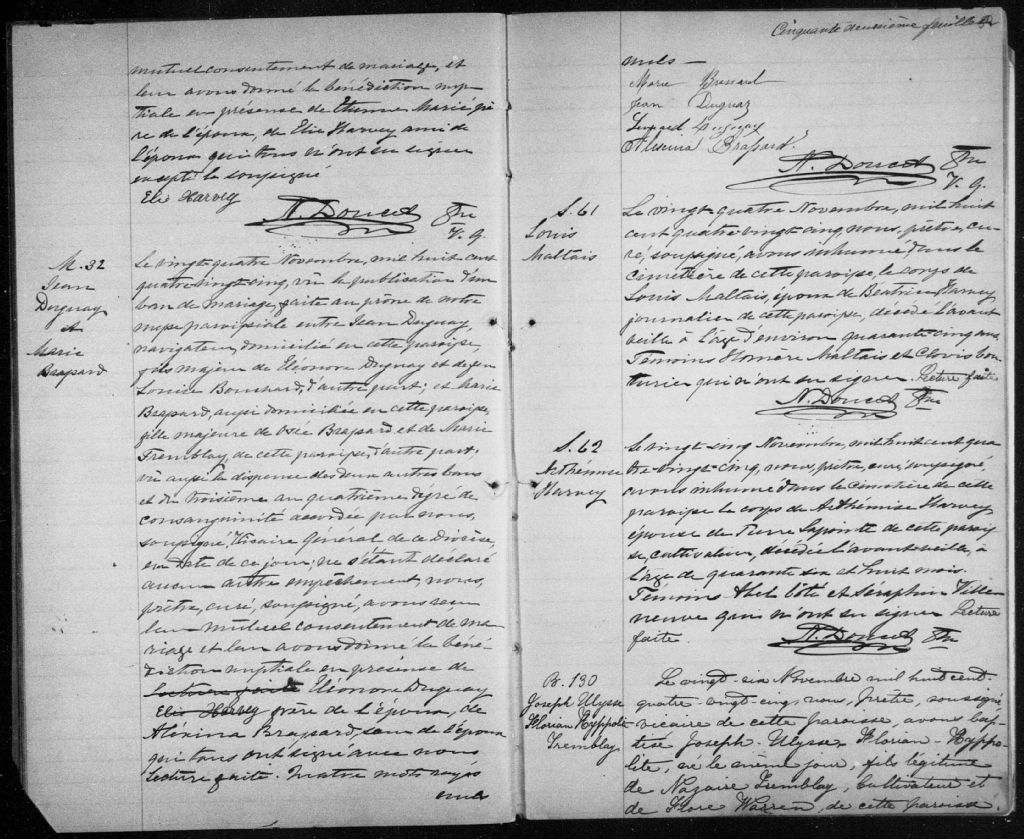 mutuel consentement de mariage, et
leur avons donné la bénédiction nup-
tiale en présence de Etienne Marié pè
re de l'époux, de Elie Harvey ami de
l'épouse qui tous n'ont su signer
excepté le soussigné
Elie Harvey
N. Doucet Ptre
V. G.
M. 32
Jean
Duguay
et
Marie
Brassard
Le vingt-quatre Novembre, mil huit cent
quatre-vingt-cinq, vu la publication d'un
ban de mariage faite au prône de notre
messe paroissiale entre Jean Duguay,
navigateur, domicilié en cette paroisse,
fils majeur de Eléonore Duguay et de feu
Louise Bouchard, d'autre part; et Marie
Brassard, aussi domiciliée en cette paroisse,
fille majeure de Osée Brassard et de Marie
Tremblay, de cette paroisse, d'autre part;
vu aussi la dispense des deux autres bans
et du troisième au quatrième degré de
consanguinité accordée par nous,
soussigné, Vicaire Général de ce Diocèse,
en date de ce jour; ne s'étant déclaré
aucun autre empêchement, nous,
prêtre, curé, soussigné, avons reçu
leur mutuel consentement de ma-
riage et leur avons donné la béné-
diction nuptiale en présence de
Lecture faite Eléonore Duguay
Elie Harvey père de l'époux, de
Aléxina Brassard, sœur de l'épouse
qui tous ont signé avec nous
Lecture faite. Quatre mots rayés
nuls
Cinquante deuxième feuillet
nuls —
Marie Brassard
Jean Duguay
Brassard
N. Doucet Ptre
V. G.
S. 61
Louis
Maltais
Le vingt-quatre Novembre, mil huit
cent quatre-vingt-cinq nous, prêtre, cu-
ré, soussigné, avons inhumé dans le
cimetière de cette paroisse, le corps de
Louis Maltais, époux de Béatrice Harvey
journalier de cette paroisse, décédé l'avant
veille à l'âge d'environ quarante-cinq ans
Témoins Homère Maltais et Clovis Cou-
turier qui n'ont su signer. Lecture faite
N. Doucet Ptre
S. 62
Arthémise
Harvey
Le vingt-cinq Novembre, mil huit cent qua
tre-vingt-cinq, nous, prêtre, curé, soussigné,
avons inhumé dans le cimetière de cette
paroisse le corps de Arthémise Harvey
épouse de Pierre Lapointe de cette parois
se, cultivateur, décédée l'avant veille, à
l'âge de quarante six et huit mois.
Témoins Abel Côté et Séraphin Ville
neuve qui n'ont su signer Lecture
faite.
N. Doucet Ptre
B. 130
Joseph Ulysse
Florian Hyppolite
Tremblay
Le vingt six Novembre mil huit cent
quatre-vingt-cinq nous, Prêtre, soussigné
vicaire de cette paroisse, avons bap
tisé Joseph-Ulysse-Florian-Hyppo-
lite, né le même jour, fils légitime
de Nazaire Tremblay, Cultivateur et
de Flore Warren, de cette paroisse.